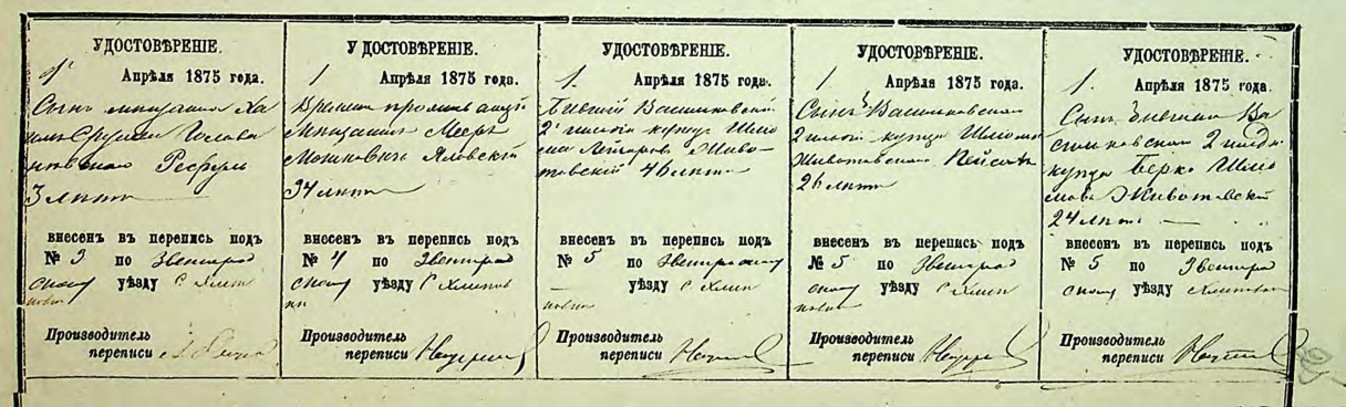 УДОСТОВѢРЕНІЕ.
1 Апрѣля 1875 года.
Сынъ мѣщанина Ха
3 лѣтъ
внесенъ въ перепись подъ
№ 3 по Звенигород
скому уѣзду с Хлип
новка
Производитель
переписи
УДОСТОВѢРЕНІЕ.
1 Апрѣля 1875 года.
Мѣщанинъ Мееръ
Мошковичъ Яловскій
34 лѣтъ
внесенъ въ перепись подъ
№ 4 по Звенигород
скому уѣзду с Хлипнов
ки
Производитель
переписи
УДОСТОВѢРЕНІЕ.
1. Апрѣля 1875 года.
Бывшій Васильковскій
2й гильдіи купецъ Шлио
ма Лейзоровъ Живо-
товскій 46 лѣтъ
внесенъ въ перепись подъ
№ 5 по Звенигородскому
уѣзду с Хлип
новки
Производитель
переписи
УДОСТОВѢРЕНІЕ.
1 Апрѣля 1875 года.
Сынъ Васильковскаго
2 гильдіи купца Шлиомы
Животовскаго Пейсахъ
26 лѣтъ
внесенъ въ перепись подъ
№ 5 по Звенигород
скому уѣзду с Хлип
новки
Производитель
переписи
УДОСТОВѢРЕНІЕ.
1. Апрѣля 1875 года.
Сынъ бывшаго Ва
сильковскаго 2 гильд.
купца Берко Шлио
мовъ Животовскій
24 лѣтъ
внесенъ въ перепись подъ
№ 5 по Звенигород
скому уѣзду с Хлипновки
Производитель
переписи